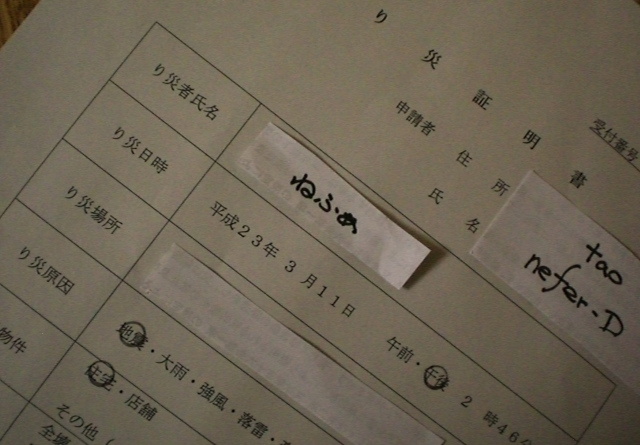 り災証明書
受付番号
申請者 住所
氏名
tao
nefer-D
り災者氏名
ねふぁ
り災日時
平成23年 3月11日 午前・午後 2時46分
り災場所
り災原因
地震・大雨・強風・落雷・
物件
住宅・店舗
その他(
全壊